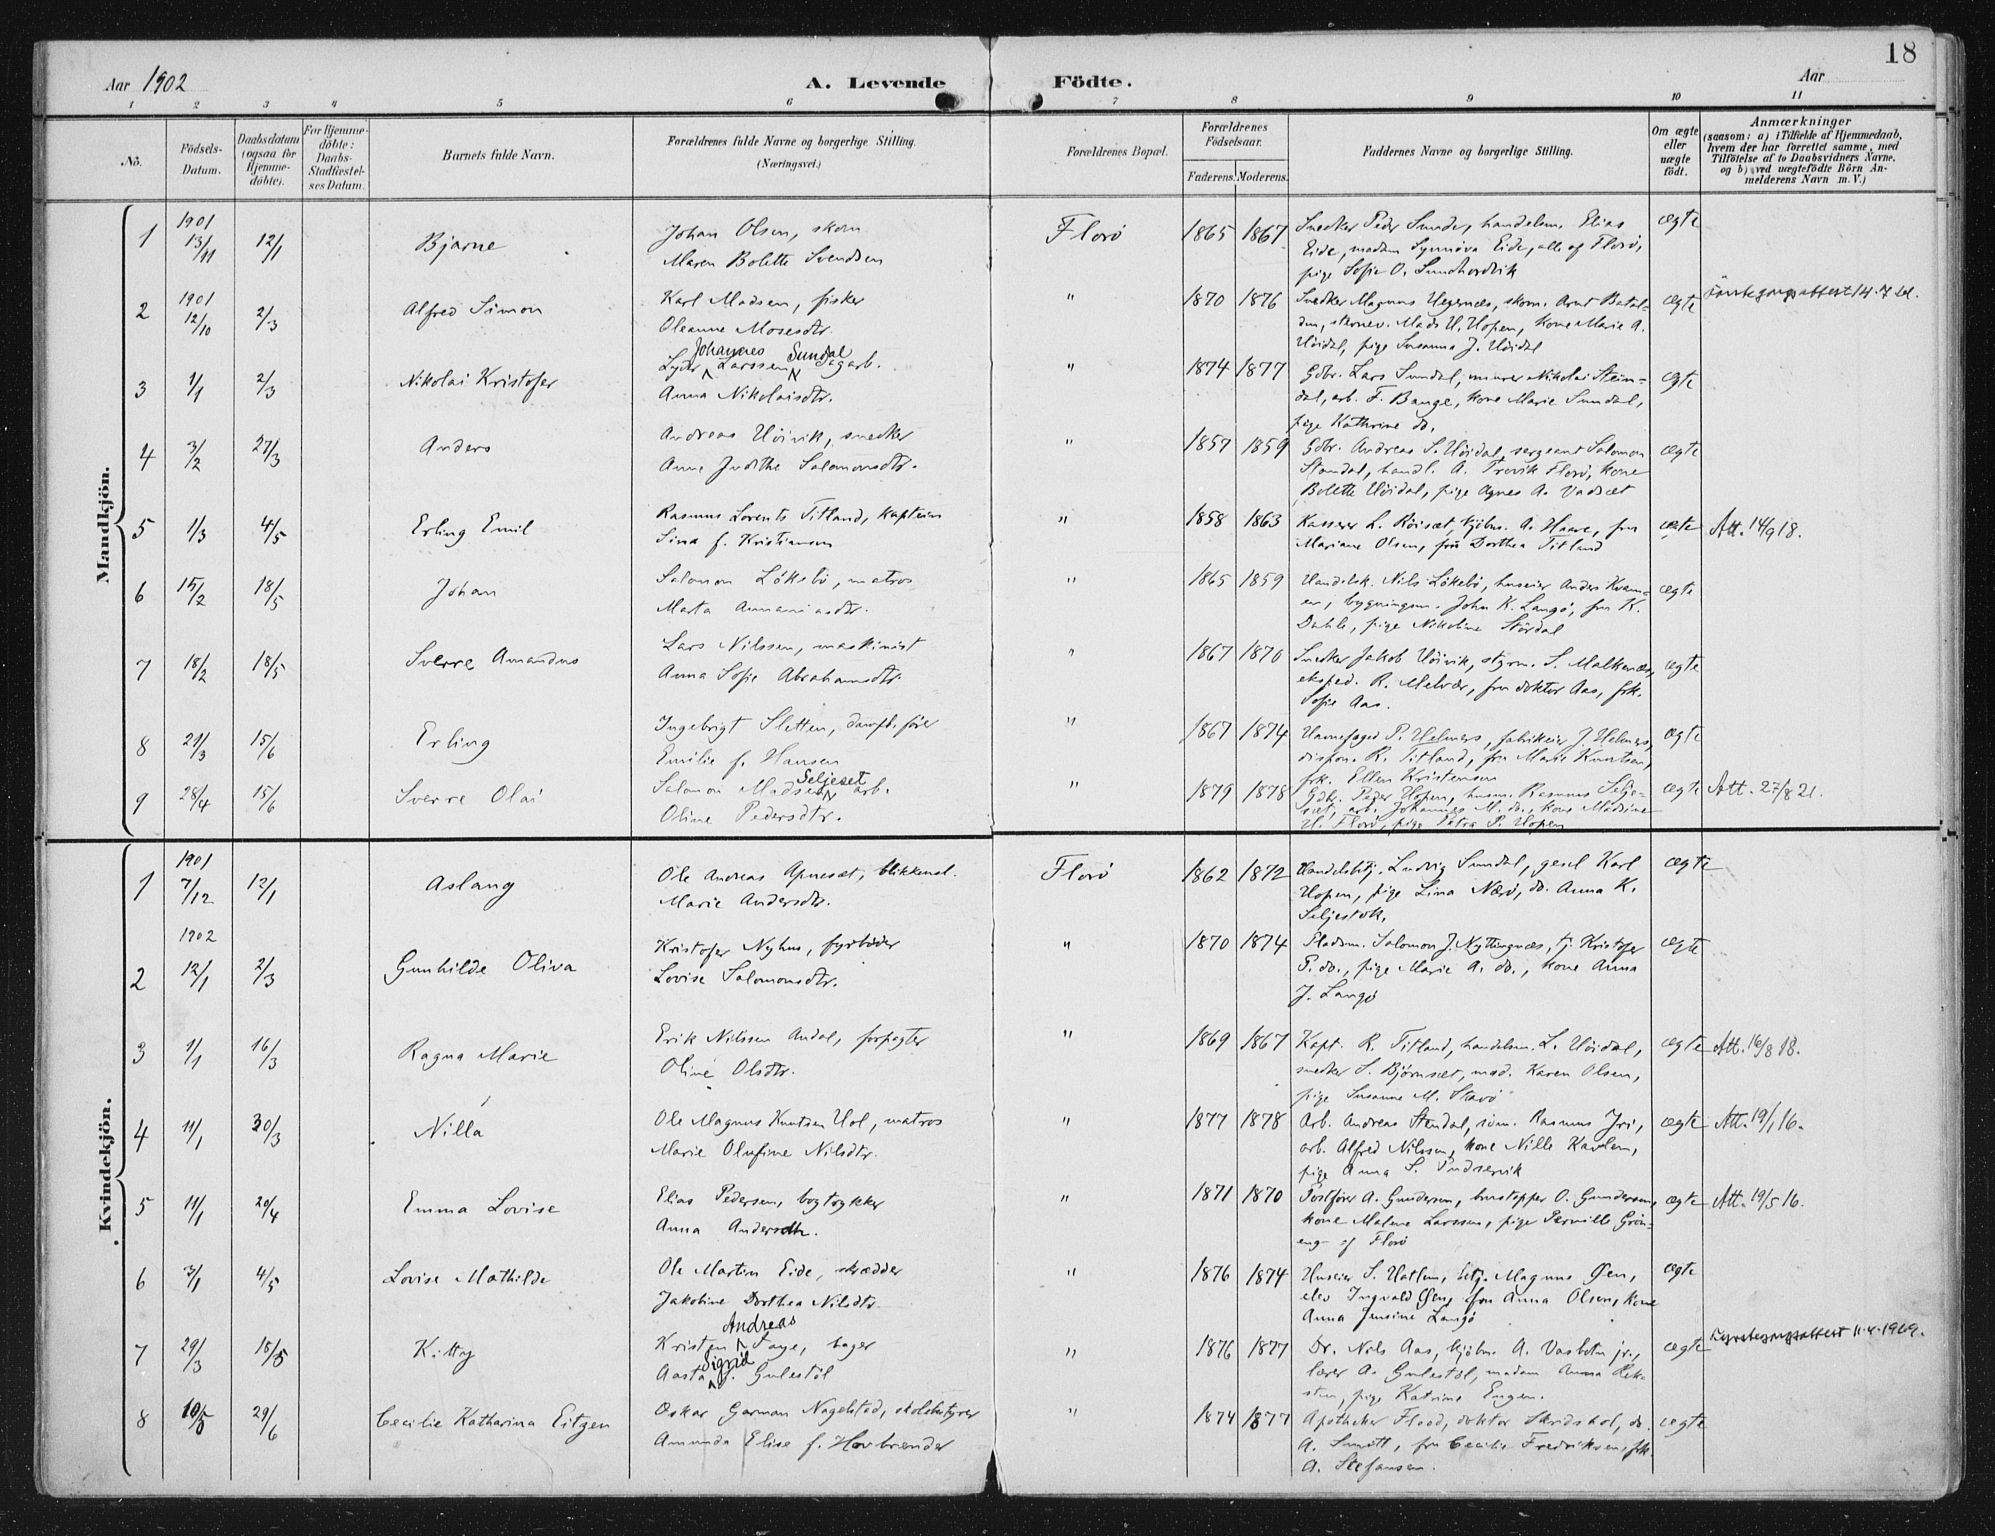 18
Aar 1902 A. Levende Födte. Aar
1 2 3 4 5 6 7 8 9 10 11
Nô. Födsels-Datum. Daabsdatum (ogsaa for Hjemme-döbte). For Hjemme-döbte: Daabs-Stadfæstel-ses Datum. Barnets fulde Navn. Forældrenes fulde Navne og borgerlige Stilling. (Næringsvei.) Forældrenes Bopæl. Forældrenes Födselsaar. Faderens. Moderens. Faddernes Navne og borgerlige Stilling. Om ægte eller uægte födt. Anmærkninger (saasom: a) i Tilfælde af Hjemmedaab, hvem der har forrettet samme, med Tilföielse af to Daabsvidners Navne, og b) ved uægtefödte Börn An-melderens Navn m. V.)
Mandkjön.
1 1901 13/11 12/1 Bjarne Johan Olsen, skom. Florö 1865 1867 Snedker Peder Sunde, handelsm. Elias ægte
Maren Bolette Svendsen Eide, madam Synnöva Eide, alle af Florö,
pige Sofie O. Sundhordvik
2 1901 12/10 2/3 Alfred Simon Karl Madsen, fisker " 1870 1876 Snedker Magnus Hegernæs, skom. Arnt Batal- ægte
Oleanne Mosesdtr. den, Mads H. Hopen, kone Marie A.
Höidal, pige Susanna J. Höidal
3 1/1 2/3 Nikolai Kristofer Johannes Sundal
Larssen dagarb. " 1874 1877 Gdbr. Lars Sundal, murer Nikolai Stein- ægte
Anna Nikolaisdtr. dal, arb. F. Bauge, kone Marie Sundal,
pige Kathrine do.
4 3/2 27/3 Anders Andreas Höivik, snedker " 1857 1859 Gdbr. Andreas S. Höidal, sergeant Salomon ægte
Anne Judithe Salomonsdtr. Standal, handl. A. Trovik Florö, kone
Bolette Höidal, pige Agnes A. Vadsæt
5 1/3 4/5 Erling Emil Rasmus Lorents Titland, kaptein " 1858 1863 Kasserer L. Röisæt, kjöbm. A. Haave, fru ægte Att. 14/9 18.
Sina f. Kristiansen Mariane Olsen, frü Dorthea Titland
6 15/2 18/5 Johan Salomon Lökebö, matros " 1865 1859 Handelsk. Nils Lökebö, huseier Anders Kvam- ægte
Marta Annaniasdtr. en, bygningsm. John K. Langö, fru K.
Dahle, pige Nikoline Stördal
7 18/2 18/5 Sverre Amandus Lars Nilssen, maskinist " 1867 1870 Snedker Jakob Höivik, styrm. S. Malkenæs, ægte
Anna Sofie Abrahamsdtr. eksped. R. Melvær, fru doktor Aas, frk.
Sofie Aas.
8 21/3 15/6 Erling Ingebrigt Sletten, dampb. förer " 1867 1874 Havnefoged P. Helmers, fabrikeier J. Helmers, ægte
Emilie f. Hansen dispon. R. Titland, fru Marie Knutsen,
frk. Ellen Kristensen
9 28/4 15/6 Sverre Olai Seljeset
Salomon Madsen arb. " 1879 1878 Gdbr. Peder Hopen, husm. Rasmus Selje- ægte Att. 27/8 21.
Oline Pedersdtr. sæt, arb. Johannes M. do., kone Madsine
H. Florö, pige Petra P. Hopen
Kvindekjön.
1 1901 7/12 12/1 Aslaug Ole Andreas Apnesæt, blikkensl. Florö 1862 1872 Handelsbtj. Ludvig Sundal, gesel Karl ægte
Marie Andersdtr. Hopen, pige Lina Nærö, do. Anna K.
Seljestok.
2 1902 12/1 2/3 Gunhilde Oliva Kristofer Nyhus, fyrböder " 1870 1874 Pladsm. Salomon J. Nyttingnæs, tj. Kristofer ægte
Lovise Salomonsdtr. P. do., pige Marie A. do., kone Anna
J. Langö
3 1/1 16/3 Ragna Marie Erik Nilssen Andal, forpagter " 1869 1867 Kapt. R. Titland, handelsm. L. Höidal, ægte Att. 16/8 18.
Oline Olsdtr. snedker S. Björnsæt, mad. Karen Olsen,
pige Susanne M. Stavö
4 11/1 30/3 Nilla Ole Magnus Knutsen Hol, matros " 1877 1878 Arb. Andreas Stendal, söm. Rasmus ægte Att. 19/1 16.
Marie Olufine Nilsdtr. arb. Alfred Nilssen, kone Nille Kavlem,
pige Anna S. Indrevik
5 11/1 20/4 Emma Lovise Elias Pedersen, bogtrykker " 1871 1870 Postförer A. Gundersen, O. Gundersen, ægte Att. 19/5 16.
Anna Andersdtr. kone Malene Larssen, pige Pernille Grön-
eng af Florö
6 3/1 4/5 Lovise Mathilde Ole Martin Eide, skrædder " 1876 1874 Huseier S. Hatlem, betj. Magnus Öen, ægte
Jakobine Dorthea Nilsdtr. elev Ingvald Öen, fru Anna Olsen, kone
Anna Jensine Langö
7 29/3 18/5 Kitty Andreas
Kristen Faye, bager " 1876 1877 Dr. Nils Aas, kjöbm. A. Vasbotn jr., ægte 11-4-1969.
Sigrid
Aasta f. Gulestöl lærer A. Gulestöl, madam Anna Rek-
sten, pige Katrine Engen.
8 10/5 29/6 Cecilie Katharina Eitzen Oskar Garman Nagelstad, skolebestyrer " 1874 1877 Apotheker Flood, doktor Skridshol, do. ægte
Amunda Elise f. Hovbrænder A. Smitt, fru Cecilie Fredriksen, frk.
A. Stefansen.